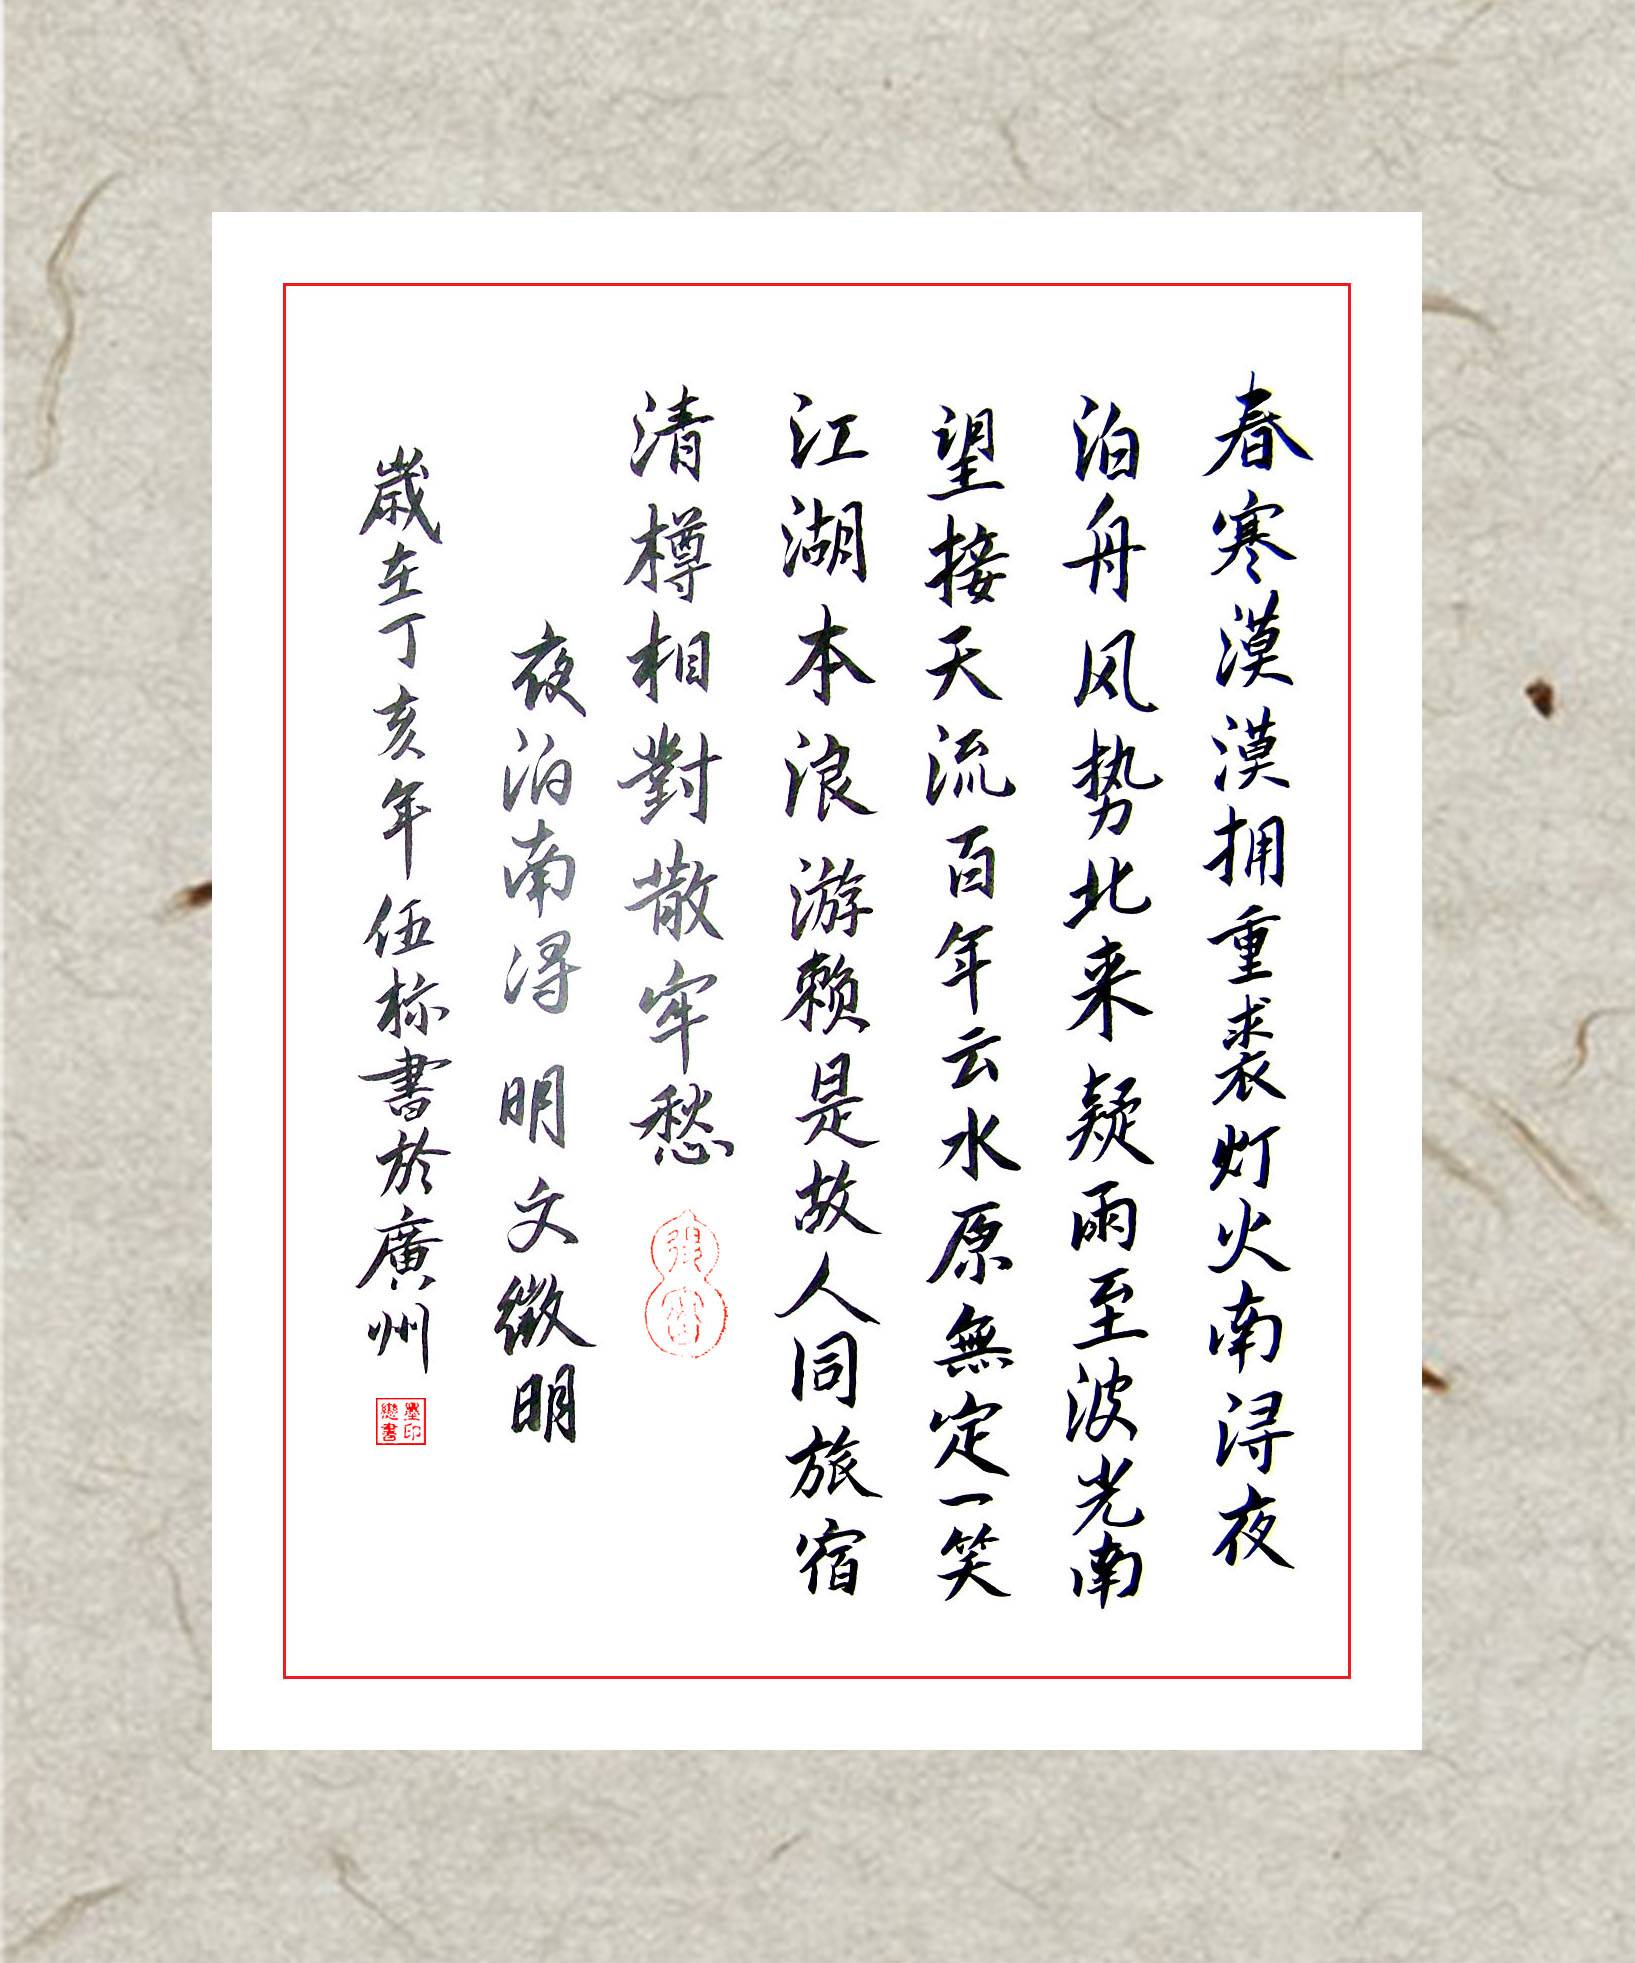 春寒漠漠拥重裘灯火南浔夜
泊舟风势北来疑雨至波光南
望接天流百年云水原無定一笑
江湖本浪游赖是故人同旅宿
清樽相對散牢愁
夜泊南浔 明 文徵明
歳在丁亥年伍标書於廣州
墨印戀書